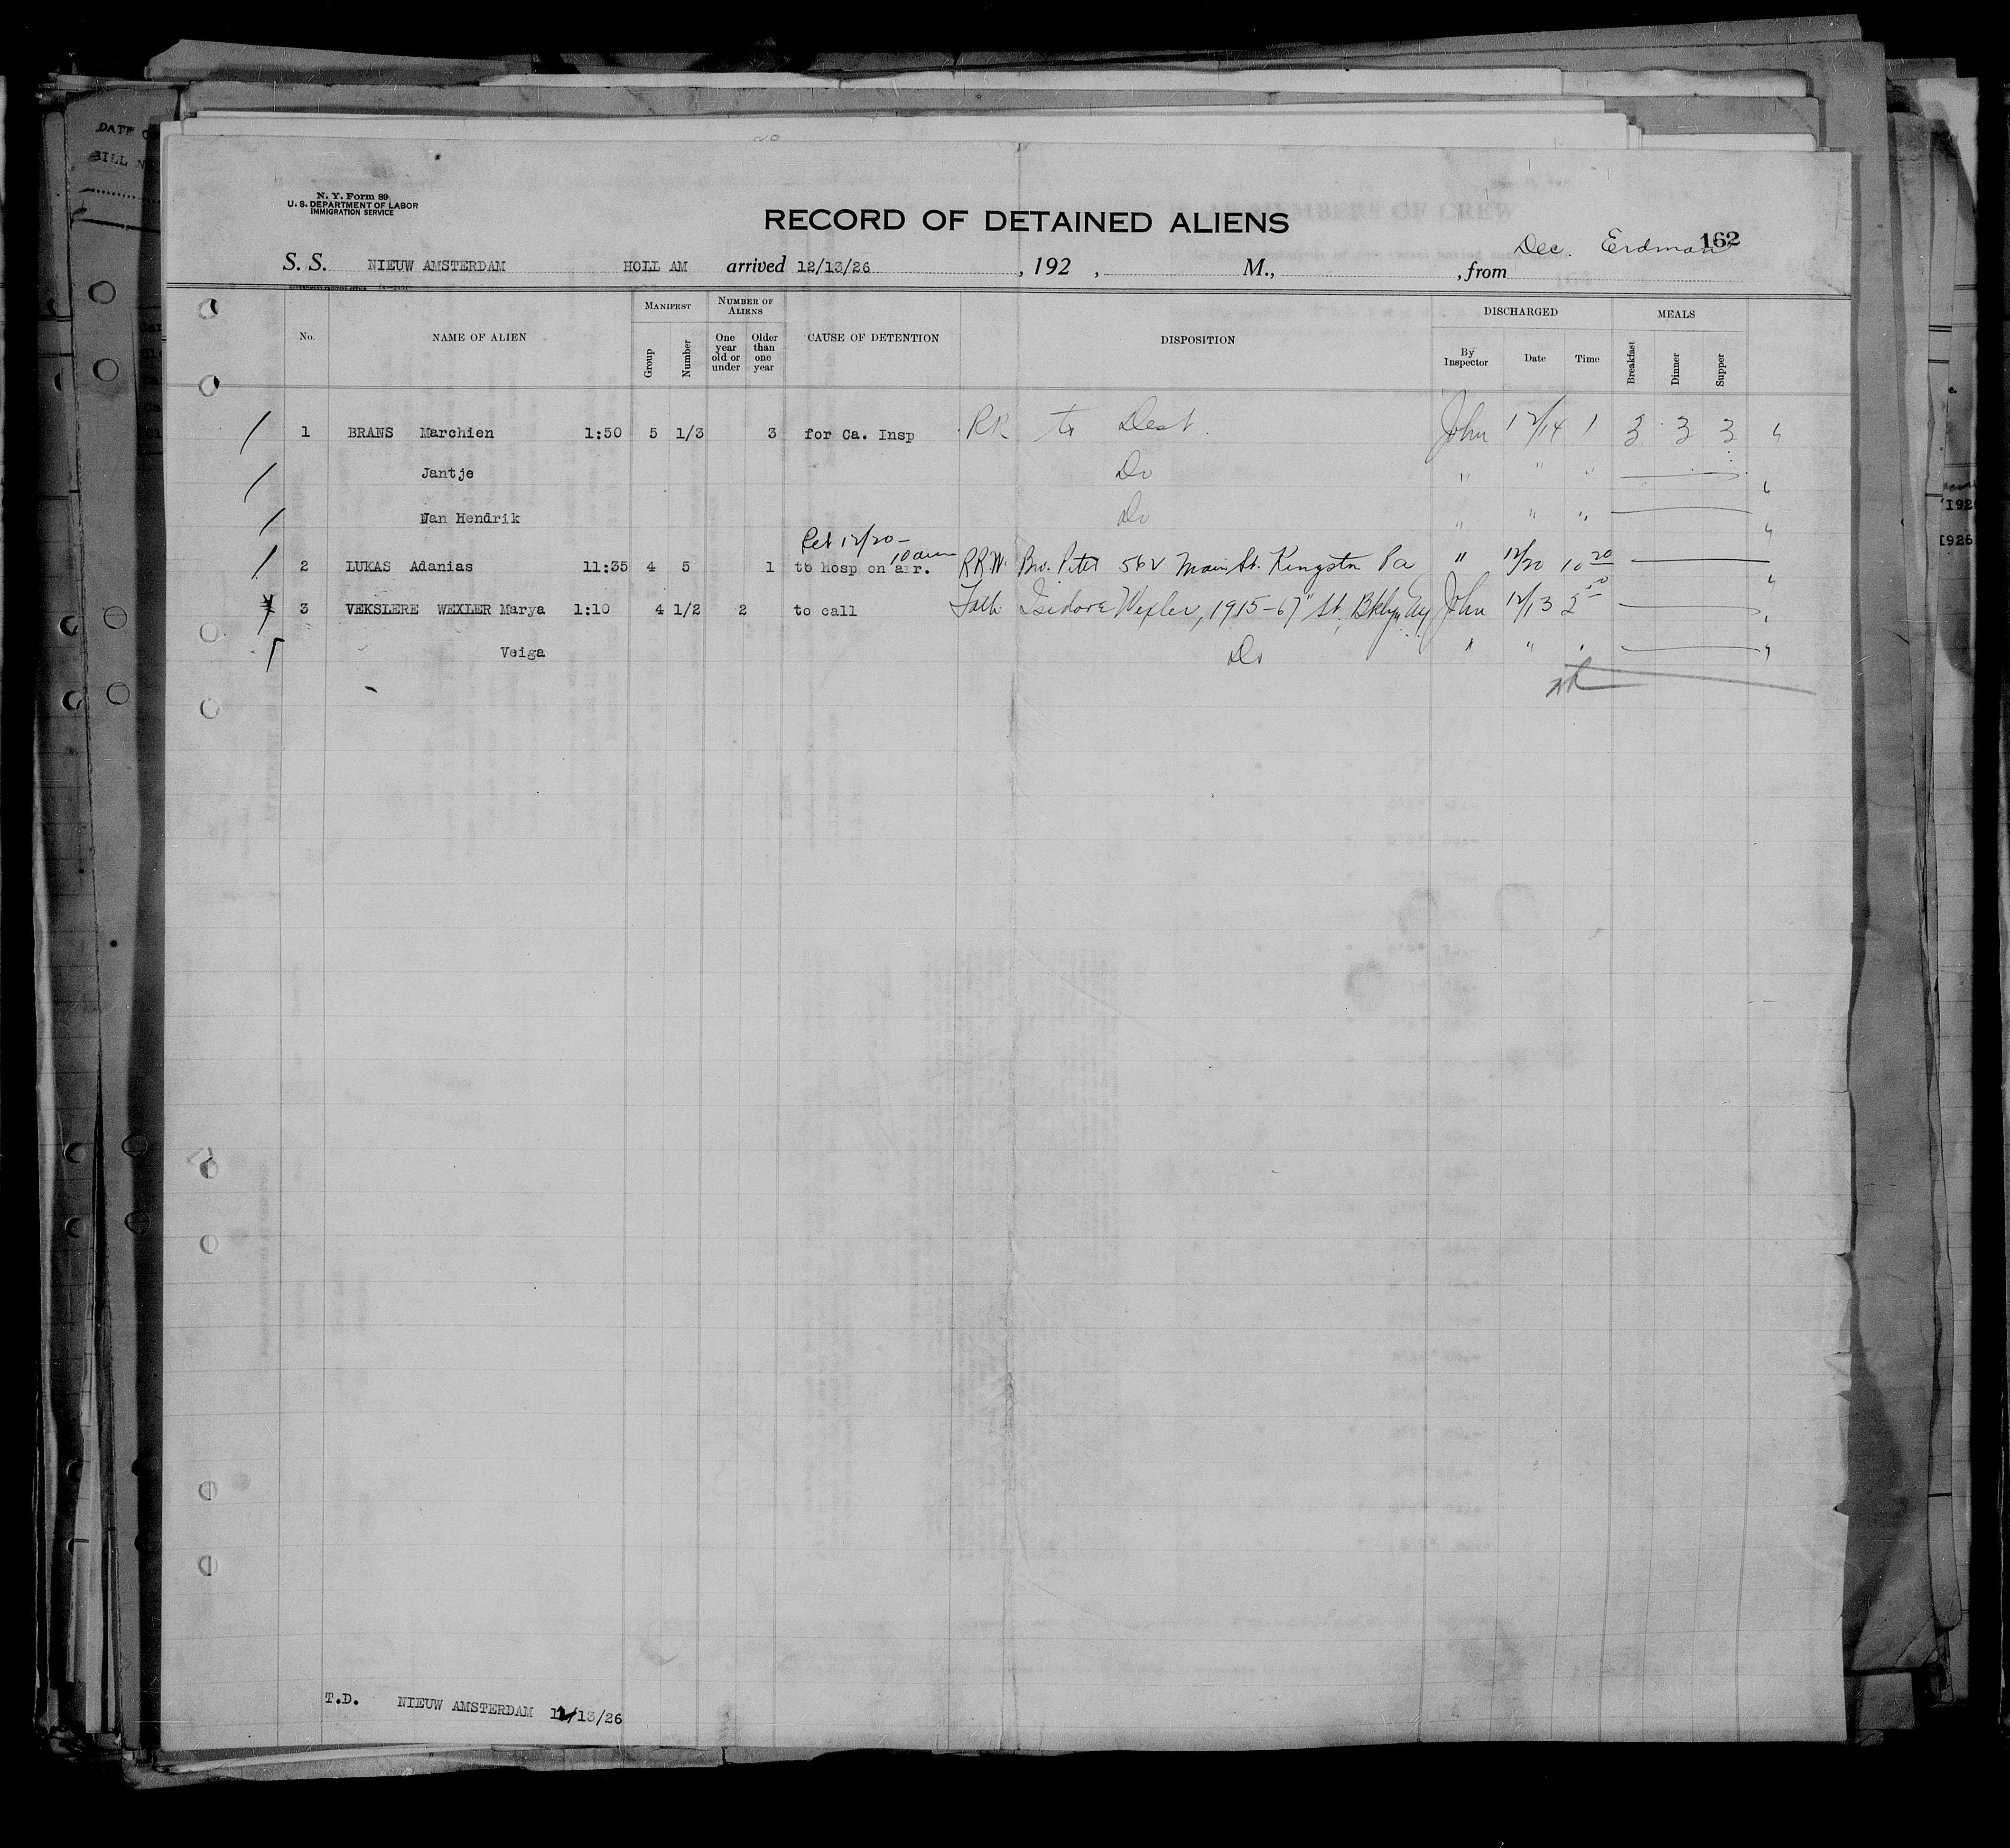 N. Y. Form 89
U. S. DEPARTMENT OF LABOR
IMMIGRATION SERVICE
RECORD OF DETAINED ALIENS
Dec. Erdman 162
S. S. NIEUW AMSTERDAM HOLL AM arrived 12/13/26 , 192 , M., , from
No. NAME OF ALIEN MANIFEST Group Number NUMBER OF ALIENS One year old or under Older than one year CAUSE OF DETENTION DISPOSITION DISCHARGED By Inspector Date Time MEALS Breakfast Dinner Supper
1 BRANS Marchien 1:50 5 1/3 3 for Ca. Insp RR to Dest. John 12/14 1 3 3 3
Jantje Do " " "
Jan Hendrik Do " " "
12/20 - 10 am
2 LUKAS Adanias 11:35 4 5 1 to hosp on arr. RR.W. Bro. Peter 562 Main St. Kingston Pa " 12/20 10 20
3 VEKSLERE WEXLER Marya 1:10 4 1/2 2 to call Fath Isidore Wexler, 1915-67" St. Bklyn Ny John 12/13 2 50
Veiga Do " " "
T.D. NIEUW AMSTERDAM 12/13/26
DATE
BILL